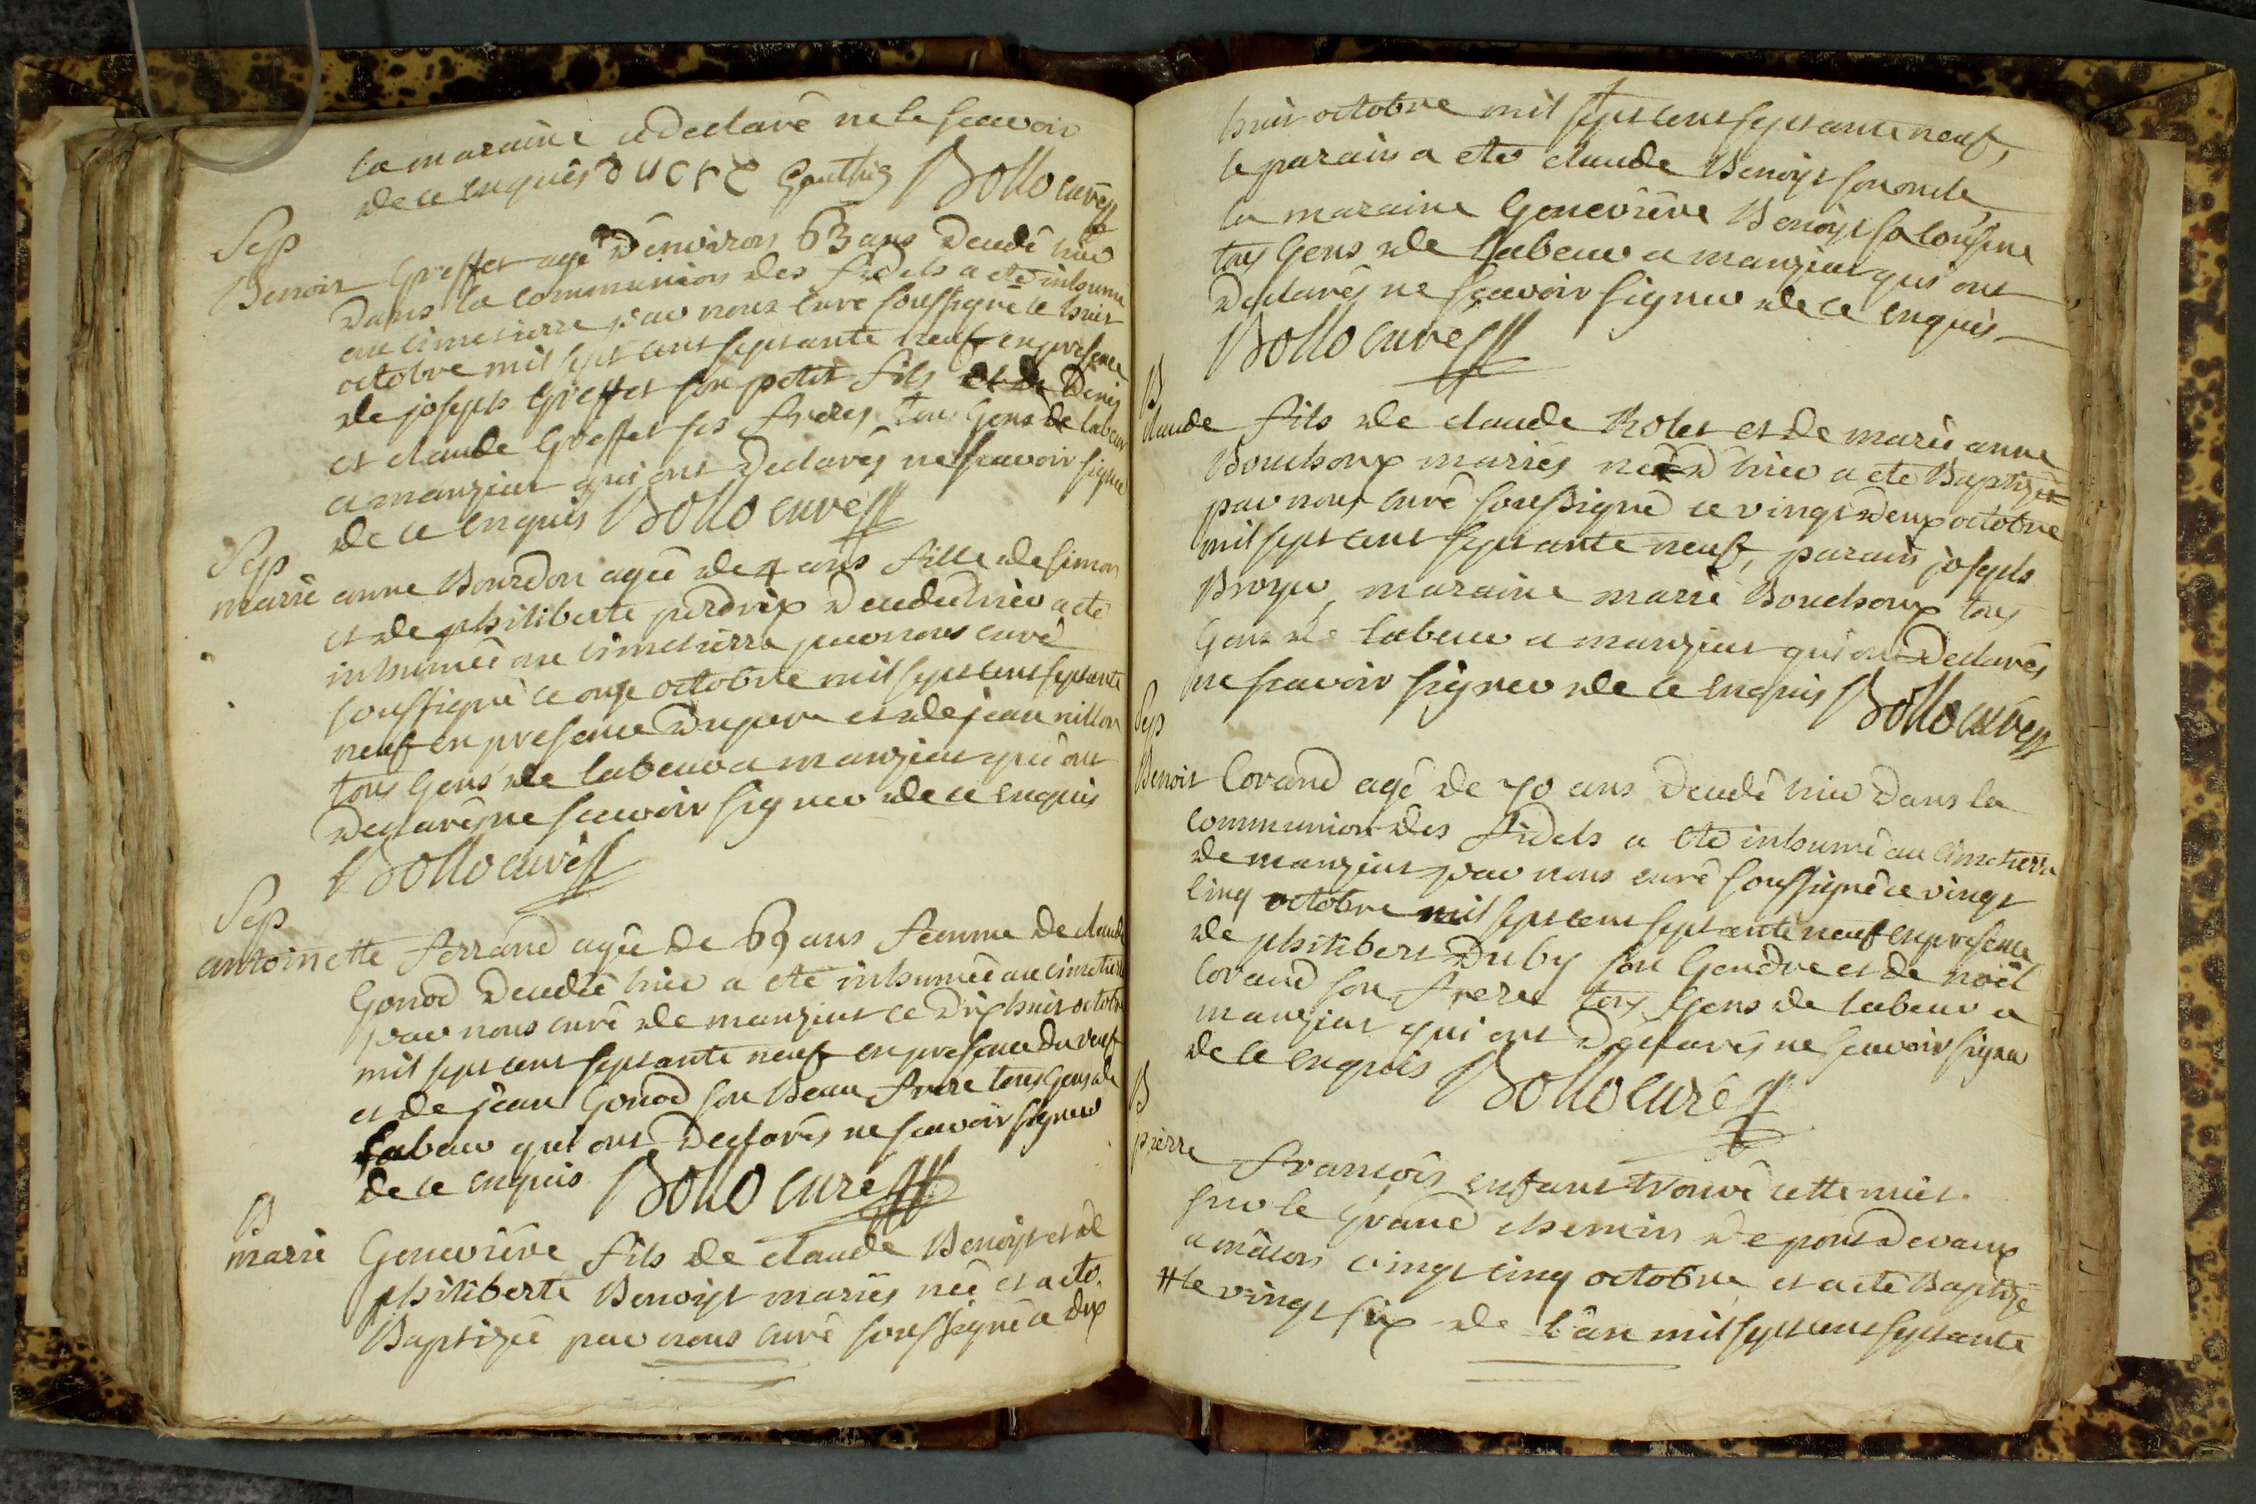 la maraine a declaré ne le scavoir
de ce enquis Gauthier Bollo curé
Sep
Benoit Greffet agé d'environ 63 ans decedé hier
dans la communion des fidels a eté inhumé
au cimetierre par nous curé soussigné le huit
octobre mil sept cent septante neuf en presence
de joseph Greffet son petit fils et de Denis
et claude Greffet ses freres tous Gens de labeur
a manziat qui ont declarés ne scavoir signer
de ce enquis Bollo curé
Sep
marie anne Bourdon agée de 4 ans fille de simon
et de philiberte perdrix decedée hier a eté
inhumée au cimetierre par nous curé
soussigné ce onze octobre mil sept cent septante
neuf en presence du pere et de jean nillon
tous Gens de labeur a manziat qui ont
declarés ne scavoir signer de ce enquis
Bollo curé
Sep
antoinette ferrand agée de 69 ans femme de claude
Gonod decedée hier a eté inhumée au cimetierre
par nous curé de manziat ce dix huit octobre
mil sept cent septante neuf en presence du veuf
et de jean Gonod son Beau frere tous Gens de
labeur qui ont declarés ne scavoir signer
de ce enquis Bollo curé
B
marie Geneviéve fils de claude Benoist et de
philiberte Benoist mariés née et a eté
Baptizée par nous curé soussigné ce dix
huit octobre mil sept cent septante neuf,
le parain a eté claude Benoist son oncle
la maraine Geneviéve Benoist sa cousine
tous Gens de labeur a manziat qui ont
declarés ne scavoir signer de ce enquis
Bollo curé
B
claude fils de claude Rolet et de marie anne
Bouchoux mariés né d'hier a eté Baptizé
par nous curé soussigné ce vingt deux octobre
mil sept cent septante neuf, parain joseph
Broyer, maraine marie Bouchoux tous
Gens de labeur a manziat qui ont declarés
ne scavoir signer de ce enquis Bollo curé
Sep
Benoit Corand agé de 70 ans decedé hier dans la
communion des fidels a eté inhumé au cimetierre
de manziat par nous curé soussigné ce vingt
cinq octobre mil sept cent septante neuf en presence
de philibert Duby son Gendre et de noël
Corand son frere tous Gens de labeur a
manziat qui ont declarés ne scavoir signer
de ce enquis Bollo curé
B
pierre françois enfant trouvé cette nuit
sur le Grand chemin de pont de vaux
a mâcon vingt cinq octobre et a eté Baptizé
# le vingt six de l'an mil sept cent septante